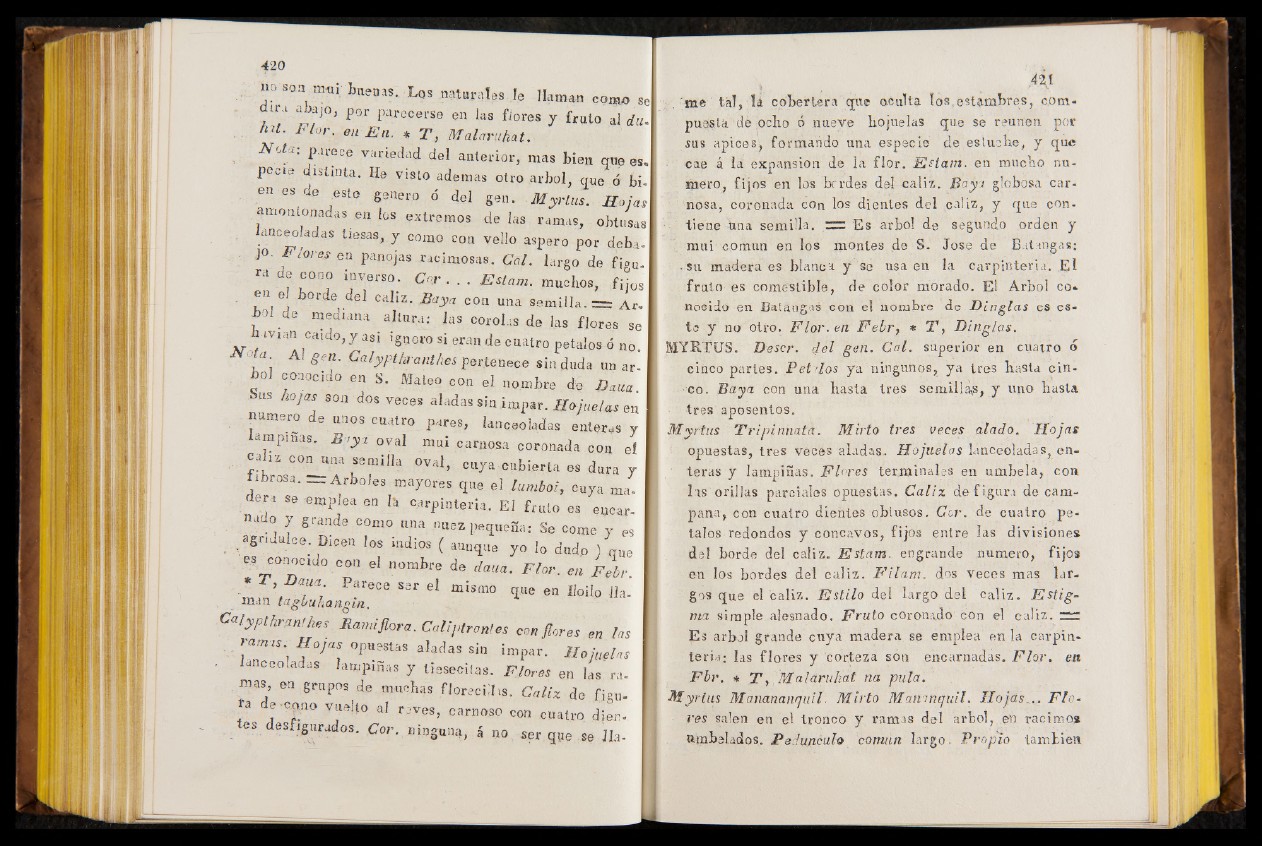 420
no son mui buenas. Los naturales le llaman como se
dira abajo, por parecerse en las flores y fruto al du-
hit. Flor. en En. * T, Malaruhat.
Nota: parece variedad del anterior, mas bien que es-
pecie distinta. He visto ademas otro arbol, que ó bi-
en es de este genero ó del gen. Myrtus. Hojas
amontonadas en los extremos de las ramas, obtusas
lanceoladas tiesas, y como con vello aspero por deba-
jo. Flores en panojas racimosas. Cal. largo de figu-
ra de cono inverso. Cor . . . Estam. muchos, fijos
en el borde del caliz. Baya con una semilla. = Ar-
bol de mediana altura: las corolas de las flores se
havian caido, y asi ignoro si eran de cuatro petalos ó no.
Nota. Al gen. Calypthranthes pertenece sin duda un ar-
bol conocido en S. Mateo con el nombre de Daua.
Sus hojas son dos veces aladas sin impar. Hojuelas en
numero de unos cuatro pares, lanceoladas enteras y
lampiñas. Baya oval mui carnosa coronada con el
caliz con una semilla oval, cuya cubierta es dura y
fibrosa. = Arboles mayores que el lumboi, cuya ma-
dera se emplea en la carpinteria. El fruto es encar-
nado y grande como una nuez pequeña: Se come y es
agridulce. Dicen los indios ( aunque yo lo dudo ) que
es conocido con el nombre de daua. Flor. en Febr.
* T, Daua. Parece ser el mismo que en Iloilo lla-
man tagbuhangin.
Calypthranthes Ramiflora. Caliptrantes con flores en las
ramas. Hojas opuestas aladas sin impar. Hojuelas
lanceoladas lampiñas y tiesecitas. Flores en las ra-
mas, en grupos de muchas florecillas. Caliz de figu-
ra de cono vuelto al reves, carnoso con cuatro dien-
tes desfigurados. Cor. ninguna, á no ser que se lla-
421
me tal, la cobertera que oculta los estambres, com-
puesta de ocho ó nueve hojuelas que se reunen por
sus apices, formando una especie de estuche, y que
cae á la expansion de la flor. Estam. en mucho nu-
mero, fijos en los bordes del caliz. Baya globosa car-
nosa, coronada con los dientes del caliz, y que con-
tiene una semilla. = Es arbol de segundo orden y
mui comun en los montes de S. Jose de Batangas;
su madera es blanca y se usa en la carpinteria. El
fruto es comestible, de color morado. El Arbol co-
nocido en Batangas con el nombre de Dinglas es es-
te y no otro. Flor. en Febr, * T, Dinglas.
MYRTUS. Descr. del gen. Cal. superior en cuatro ó
cinco partes. Petalos ya ningunos, ya tres hasta cin-
co. Baya con una hasta tres semillas, y uno hasta
tres aposentos.
Myrtus Tripinnata. Mirto tres veces alado. Hojas
opuestas, tres veces aladas. Hojuelas lanceoladas, en-
teras y lampiñas. Flores terminales en umbela, con
las orillas parciales opuestas. Caliz de figura de cam-
pana, con cuatro dientes obtusos. Cor. de cuatro pe-
talos redondos y concavos, fijos entre las divisiones
del borde del caliz. Estam. en grande numero, fijos
en los bordes del caliz. Filam. dos veces mas lar-
gos que el caliz. Estilo del largo del caliz. Estig-
ma simple alesnado. Fruto coronado con el caliz. =
Es arbol grande cuya madera se emplea en la carpin-
teria: las flores y corteza son encarnadas. Flor. en
Fbr. * T, Malaruhat na pula.
Myrtus Manananquil. Mirto Mananquil. Hojas... Flo-
res salen en el tronco y ramas del arbol, en racimos
umbelados. Pedunculo comun largo. Propio tambien